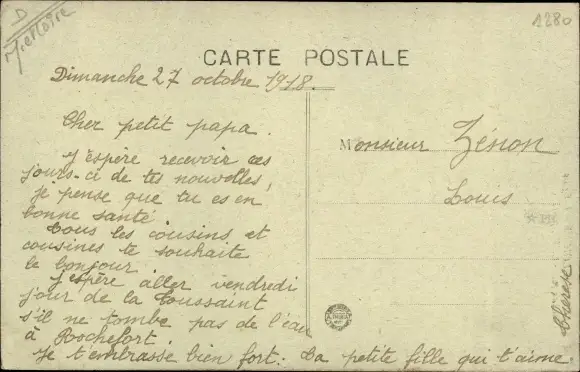 D
1280
CARTE POSTALE
Dimanche 27 octobre 1918.
Cher petit papa.
J'espère recevoir ces
jours-ci de tes nouvelles,
je pense que tu es en
bonne santé.
Tous les cousins et
cousines te souhaite
le bonjour.
J'espère aller vendredi
jour de la Toussaint
s'il ne tombe pas de l'eau
à Rochefort.
Je t'embrasse bien fort. Ta petite fille qui t'aime.
Thérèse
Monsieur Zénon
Louis